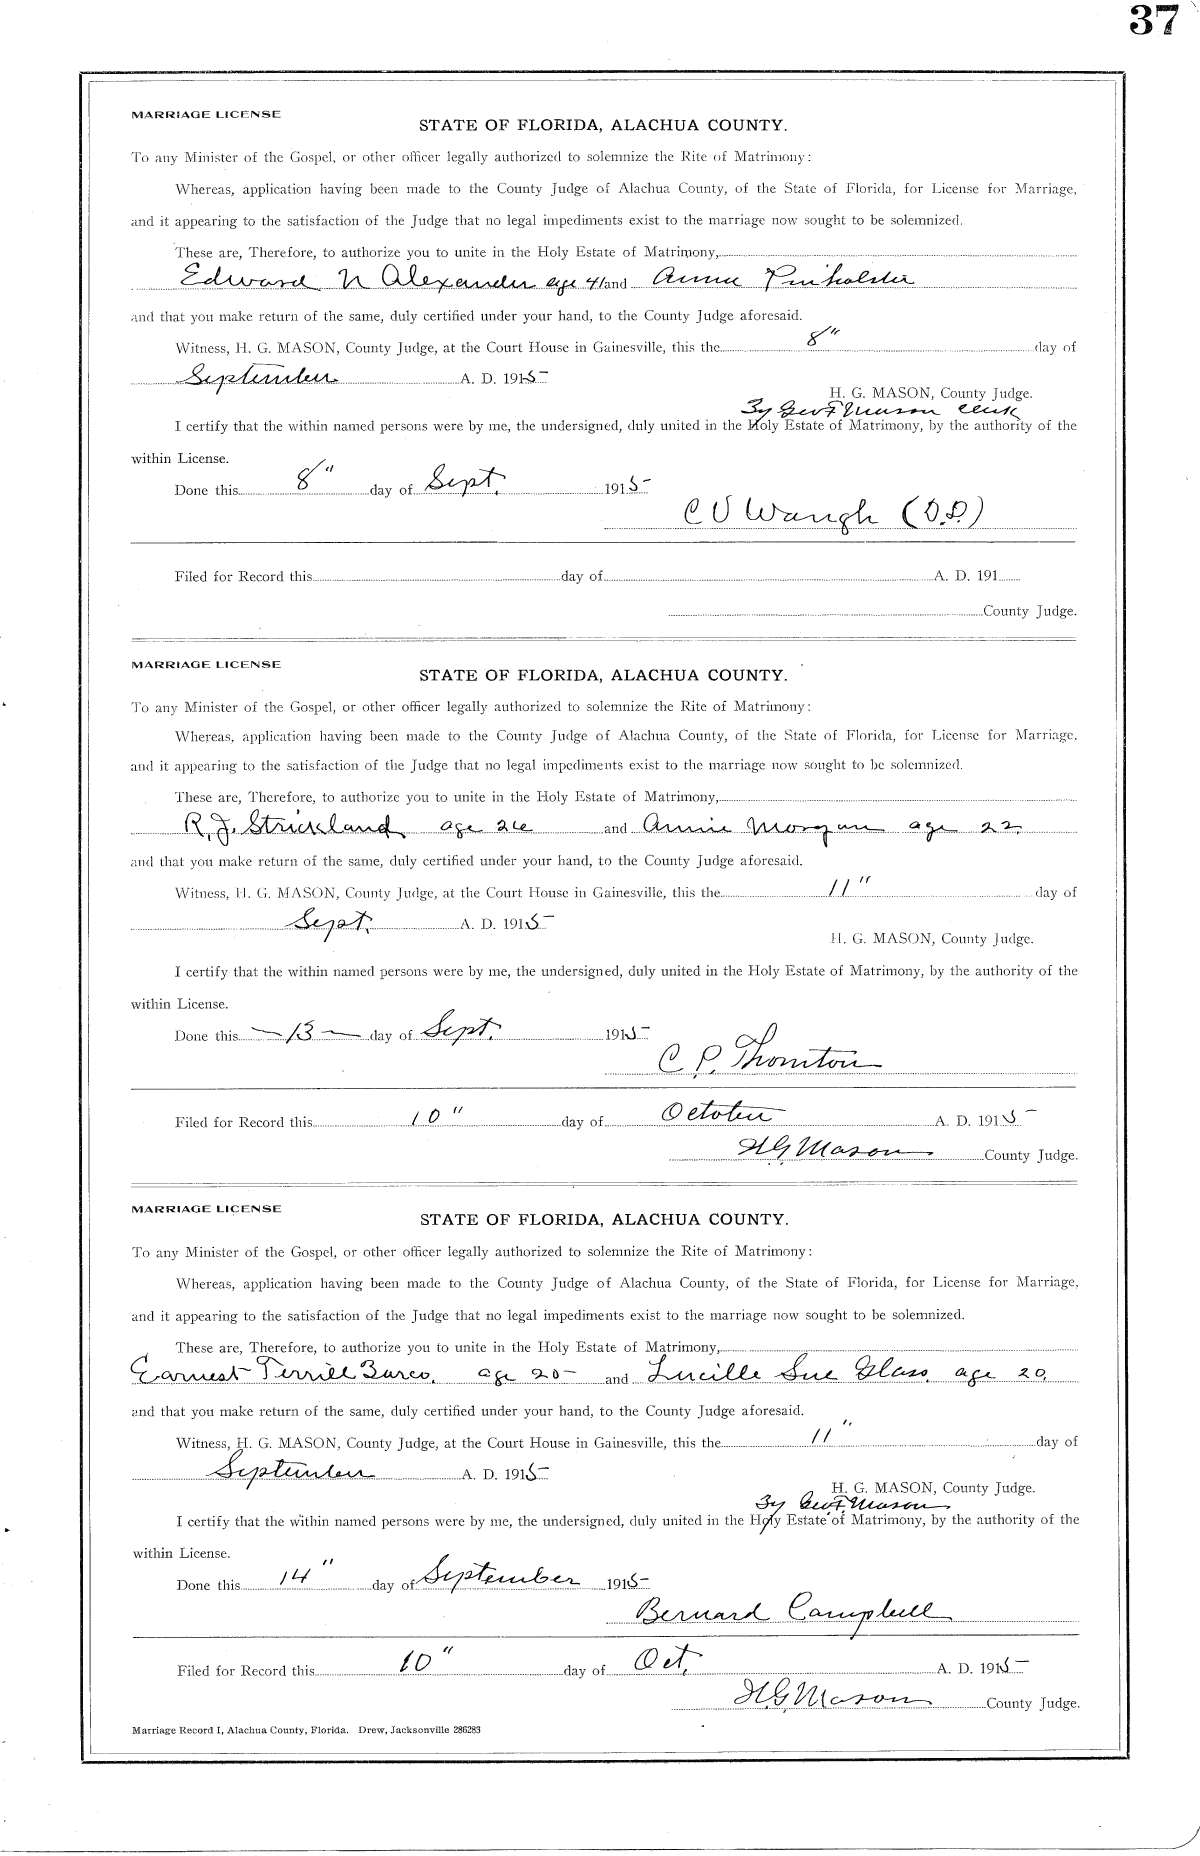 37
MARRIAGE LICENSE
STATE OF FLORIDA, ALACHUA COUNTY.
To any Minister of the Gospel, or other officer legally authorized to solemnize the Rite of Matrimony:
Whereas, application having been made to the County Judge of Alachua County, of the State of Florida, for License for Marriage,
and it appearing to the satisfaction of the Judge that no legal impediments exist to the marriage now sought to be solemnized.
These are, Therefore, to authorize you to unite in the Holy Estate of Matrimony,
Edward N Alexander age 41 and Annie Pinholster
and that you make return of the same, duly certified under your hand, to the County Judge aforesaid.
Witness, H. G. MASON, County Judge, at the Court House in Gainesville, this the 8" day of
September A. D. 1915
H. G. MASON, County Judge.
By Geo F Mason Clerk
I certify that the within named persons were by me, the undersigned, duly united in the Holy Estate of Matrimony, by the authority of the
within License.
Done this 8" day of Sept. 1915
C V Waugh (D.D.)
Filed for Record this day of A. D. 191
County Judge.
MARRIAGE LICENSE
STATE OF FLORIDA, ALACHUA COUNTY.
To any Minister of the Gospel, or other officer legally authorized to solemnize the Rite of Matrimony:
Whereas, application having been made to the County Judge of Alachua County, of the State of Florida, for License for Marriage,
and it appearing to the satisfaction of the Judge that no legal impediments exist to the marriage now sought to be solemnized.
These are, Therefore, to authorize you to unite in the Holy Estate of Matrimony,
R. J. Strickland age 26 and Annie Morgan age 22
and that you make return of the same, duly certified under your hand, to the County Judge aforesaid.
Witness, H. G. MASON, County Judge, at the Court House in Gainesville, this the 11" day of
Sept. A. D. 1915
H. G. MASON, County Judge.
I certify that the within named persons were by me, the undersigned, duly united in the Holy Estate of Matrimony, by the authority of the
within License.
Done this 13 day of Sept. 1915
C. P. Thornton
Filed for Record this 10" day of October A. D. 1915
H.G. Mason County Judge.
MARRIAGE LICENSE
STATE OF FLORIDA, ALACHUA COUNTY.
To any Minister of the Gospel, or other officer legally authorized to solemnize the Rite of Matrimony:
Whereas, application having been made to the County Judge of Alachua County, of the State of Florida, for License for Marriage,
and it appearing to the satisfaction of the Judge that no legal impediments exist to the marriage now sought to be solemnized.
These are, Therefore, to authorize you to unite in the Holy Estate of Matrimony,
Earnest Terrill Burco, age 20 and Lucille Sue Glass, age 20,
and that you make return of the same, duly certified under your hand, to the County Judge aforesaid.
Witness, H. G. MASON, County Judge, at the Court House in Gainesville, this the 11" day of
September A. D. 1915
H. G. MASON, County Judge.
By Geo F. Mason
I certify that the within named persons were by me, the undersigned, duly united in the Holy Estate of Matrimony, by the authority of the
within License.
Done this 14" day of September 1915
Bernard Campbell
Filed for Record this 10" day of Oct, A. D. 1915
H.G. Mason County Judge.
Marriage Record I, Alachua County, Florida. Drew, Jacksonville 286283